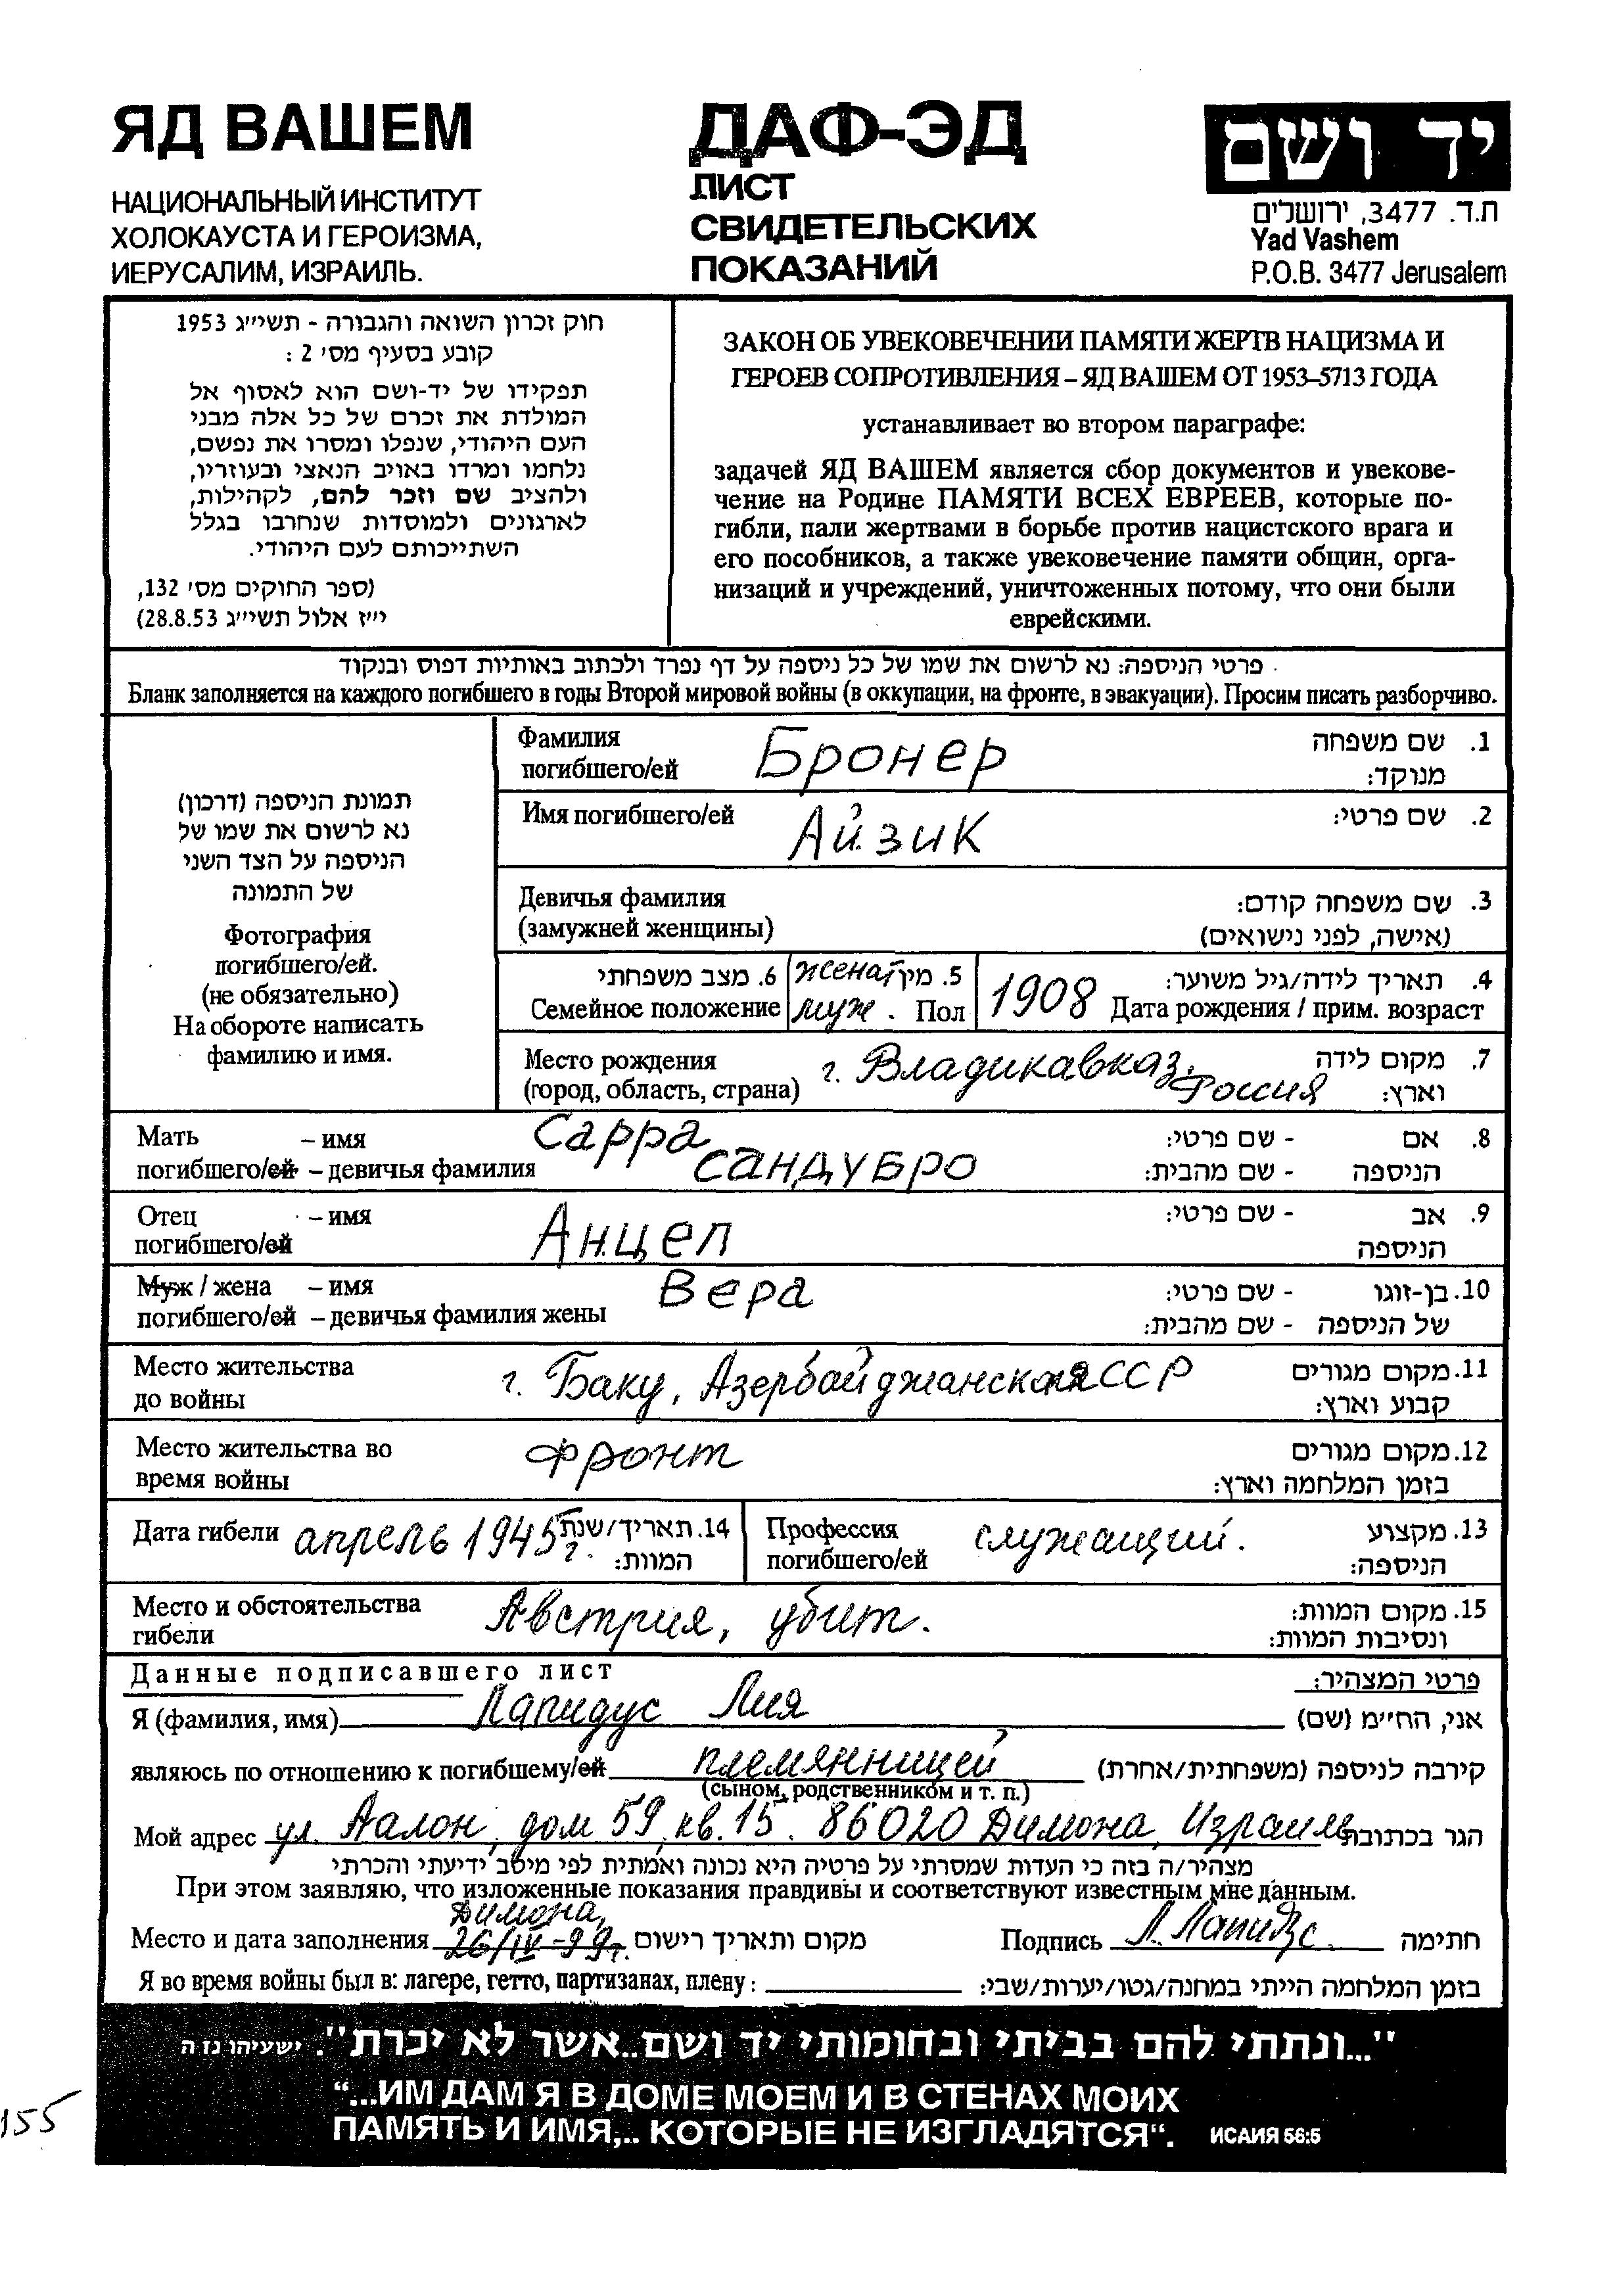 ЯД ВАШЕМ
НАЦИОНАЛЬНЫЙ ИНСТИТУТ
ХОЛОКАУСТА И ГЕРОИЗМА,
ИЕРУСАЛИМ, ИЗРАИЛЬ.
ДАФ-ЭД
ЛИСТ
СВИДЕТЕЛЬСКИХ
ПОКАЗАНИЙ
יד ושם
ת.ד. 3477, ירושלים
Yad Vashem
P.O.B. 3477 Jerusalem
חוק זכרון השואה והגבורה - תשי״ג 1953
קובע בסעיף מס׳ 2 :
תפקידו של יד-ושם הוא לאסוף אל
המולדת את זכרם של כל אלה מבני
העם היהודי, שנפלו ומסרו את נפשם,
נלחמו ומרדו באויב הנאצי ובעוזריו,
ולהציב שם וזכר להם, לקהילות,
לארגונים ולמוסדות שנחרבו בגלל
השתייכותם לעם היהודי.
(ספר החוקים מס׳ 132,
י״ז אלול תשי״ג 28.8.53)
ЗАКОН ОБ УВЕКОВЕЧЕНИИ ПАМЯТИ ЖЕРТВ НАЦИЗМА И
ГЕРОЕВ СОПРОТИВЛЕНИЯ – ЯД ВАШЕМ ОТ 1953–5713 ГОДА
устанавливает во втором параграфе:
задачей ЯД ВАШЕМ является сбор документов и увекове-
чение на Родине ПАМЯТИ ВСЕХ ЕВРЕЕВ, которые по-
гибли, пали жертвами в борьбе против нацистского врага и
его пособников, а также увековечение памяти общин, орга-
низаций и учреждений, уничтоженных потому, что они были
еврейскими.
פרטי הניספה: נא לרשום את שמו של כל ניספה על דף נפרד ולכתוב באותיות דפוס ובנקוד
Бланк заполняется на каждого погибшего в годы Второй мировой войны (в оккупации, на фронте, в эвакуации). Просим писать разборчиво.
תמונת הניספה (דרכון)
נא לרשום את שמו של
הניספה על הצד השני
של התמונה
Фотография
погибшего/ей.
(не обязательно)
На обороте написать
фамилию и имя.
Фамилия Бронер 1. שם משפחה
погибшего/ей מנוקד:
Имя погибшего/ей Айзик 2. שם פרטי:
Девичья фамилия 3. שם משפחה קודם:
(замужней женщины) (אישה, לפני נישואים)
6. מצב משפחתי женат 5. מין 4. תאריך לידה/גיל משוער:
Семейное положение муж. Пол 1908 Дата рождения / прим. возраст
Место рождения г. Владикавказ. 7. מקום לידה
(город, область, страна) Россия וארץ:
Мать – имя Сарра 8. אם - שם פרטי:
погибшего/ей – девичья фамилия САНДУБРО הניספה - שם מהבית:
Отец – имя Анцел 9. אב - שם פרטי:
погибшего/ей הניספה
Муж / жена – имя Вера 10. בן-זוגו - שם פרטי:
погибшего/ей – девичья фамилия жены של הניספה - שם מהבית:
Место жительства г. Баку, Азербайджанская ССР 11. מקום מגורים
до войны קבוע וארץ:
Место жительства во Фронт 12. מקום מגורים
время войны בזמן המלחמה וארץ:
Дата гибели апрель 1945 г. 14. תאריך/שנת
המוות:
Профессия служащий. 13. מקצוע
погибшего/ей הניספה:
Место и обстоятельства Австрия, убит. 15. מקום המוות:
гибели ונסיבות המוות:
Данные подписавшего лист פרטי המצהיר:
Я (фамилия, имя) Лапидус Лия אני, החי״מ (שם)
являюсь по отношению к погибшему/ей племянницей קירבה לניספה (משפחתית/אחרת)
(сыном, родственником и т. п.)
Мой адрес ул. Аалон, дом 59, кв. 15. 86020 Димона, Израиль הגר בכתובת
מצהיר/ה בזה כי העדות שמסרתי על פרטיה היא נכונה ואמתית לפי מיטב ידיעתי והכרתי
При этом заявляю, что изложенные показания правдивы и соответствуют известным мне данным.
Димона,
Место и дата заполнения 26/IV-99г. מקום ותאריך רישום Подпись Л. Лапидус. חתימה
Я во время войны был в: лагере, гетто, партизанах, плену : בזמן המלחמה הייתי במחנה/גטו/יערות/שבי:
"...ונתתי להם בביתי ובחומותי יד ושם...אשר לא יכרת". ישעיהו נו ה
“...ИМ ДАМ Я В ДОМЕ МОЕМ И В СТЕНАХ МОИХ
ПАМЯТЬ И ИМЯ,.. КОТОРЫЕ НЕ ИЗГЛАДЯТСЯ“. ИСАИЯ 56:5
155